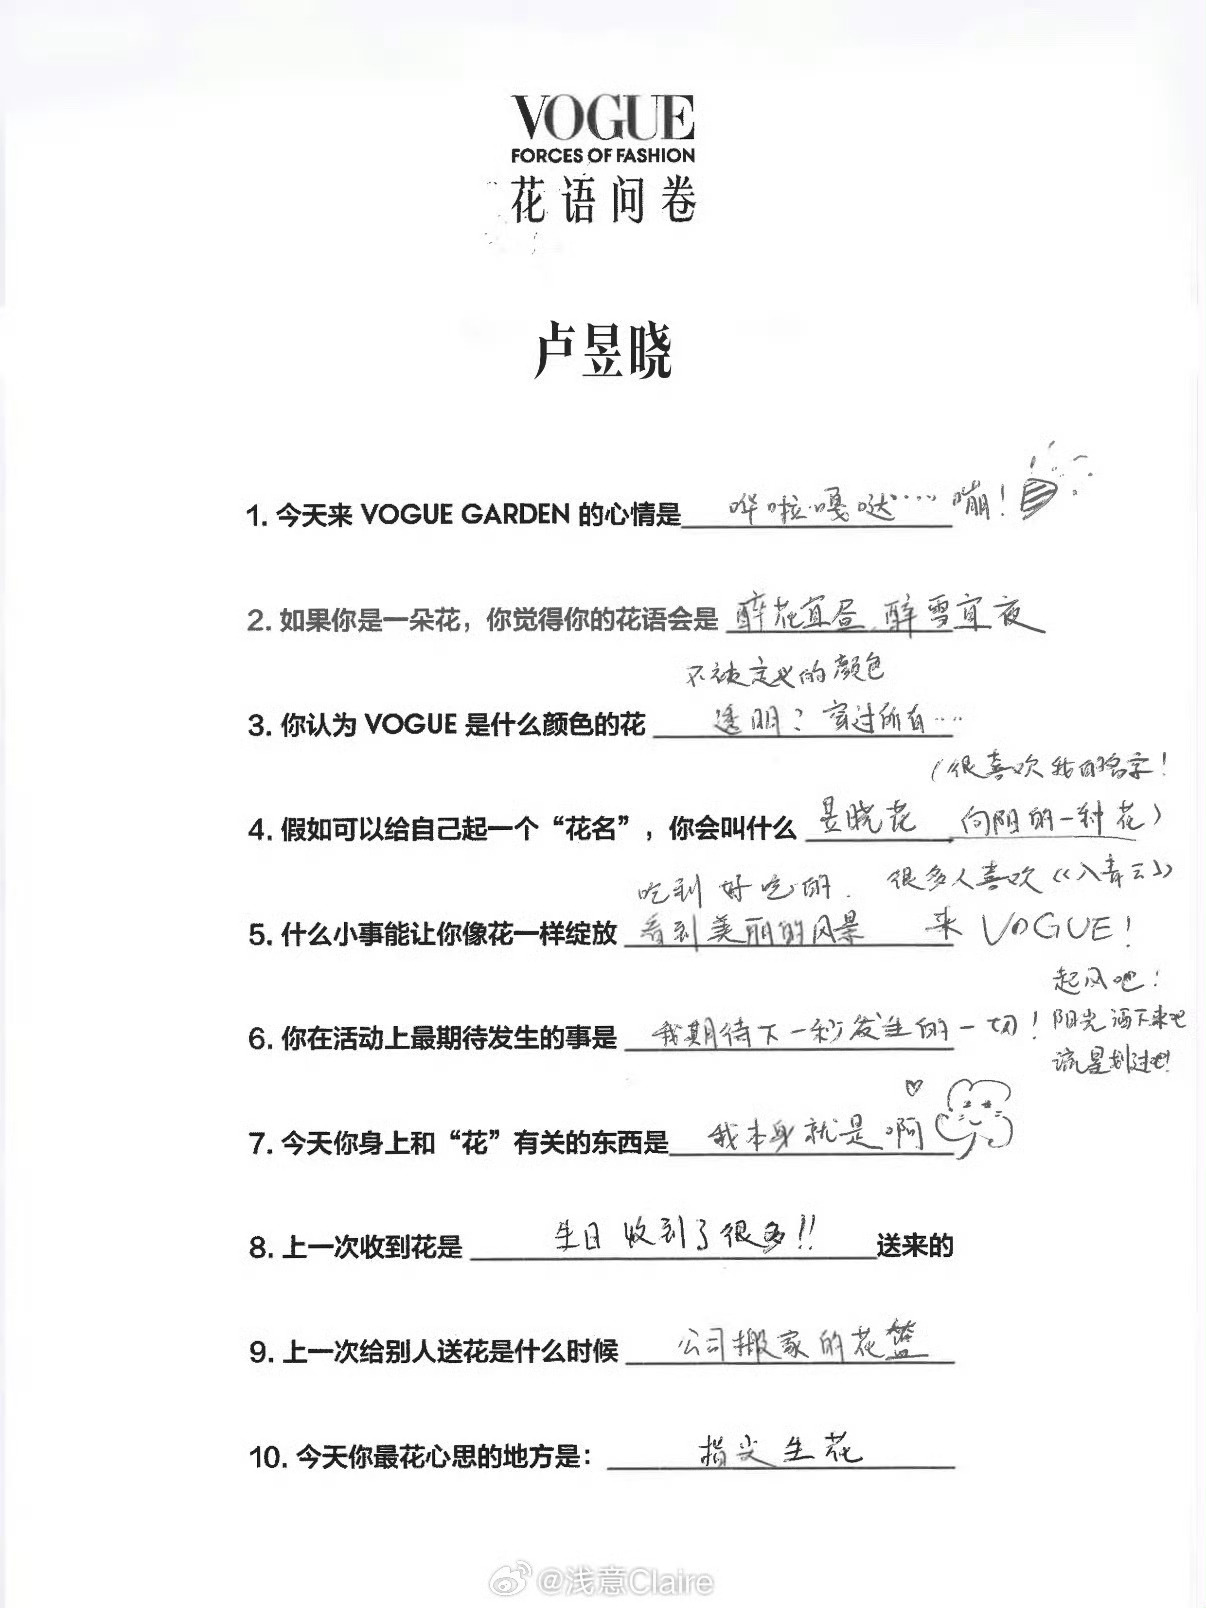 VOGUE
FORCES OF FASHION
花语问卷
卢昱晓
1. 今天来 VOGUE GARDEN 的心情是 哗啦嘎哒…… 嘣！
2. 如果你是一朵花，你觉得你的花语会是 醉花宜昼，醉雪宜夜
不被定义的颜色
3. 你认为 VOGUE 是什么颜色的花 透明？穿过所有……
（很喜欢我的名字！
4. 假如可以给自己起一个“花名”，你会叫什么 昱晓花 向阳的一种花）
吃到好吃的. 很多人喜欢《入青云》
5. 什么小事能让你像花一样绽放 看到美丽的风景 来 VOGUE！
起风吧！
6. 你在活动上最期待发生的事是 我期待下一秒发生的一切！阳光洒下来吧
流星划过吧！
7. 今天你身上和“花”有关的东西是 我本身就是啊
8. 上一次收到花是 生日收到了很多!! 送来的
9. 上一次给别人送花是什么时候 公司搬家的花篮
10. 今天你最花心思的地方是： 指尖生花
@浅意Claire